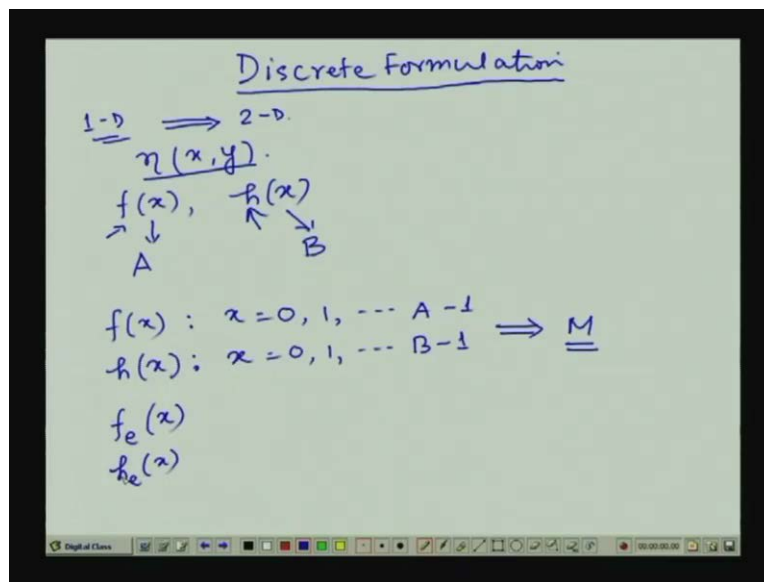 Discrete Formulation
1-D ⟹ 2-D.
η(x,y).
f(x), h(x)
A B
f(x) : x = 0, 1, --- A-1
h(x) : x = 0, 1, --- B-1 ⟹ M
fₑ(x)
hₑ(x)
Digital Class 00:00:00.00